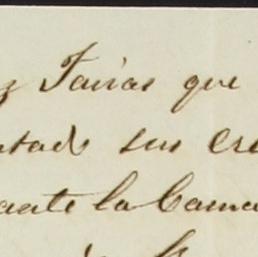 z Farias que
ntado sus cre
ante la Cama